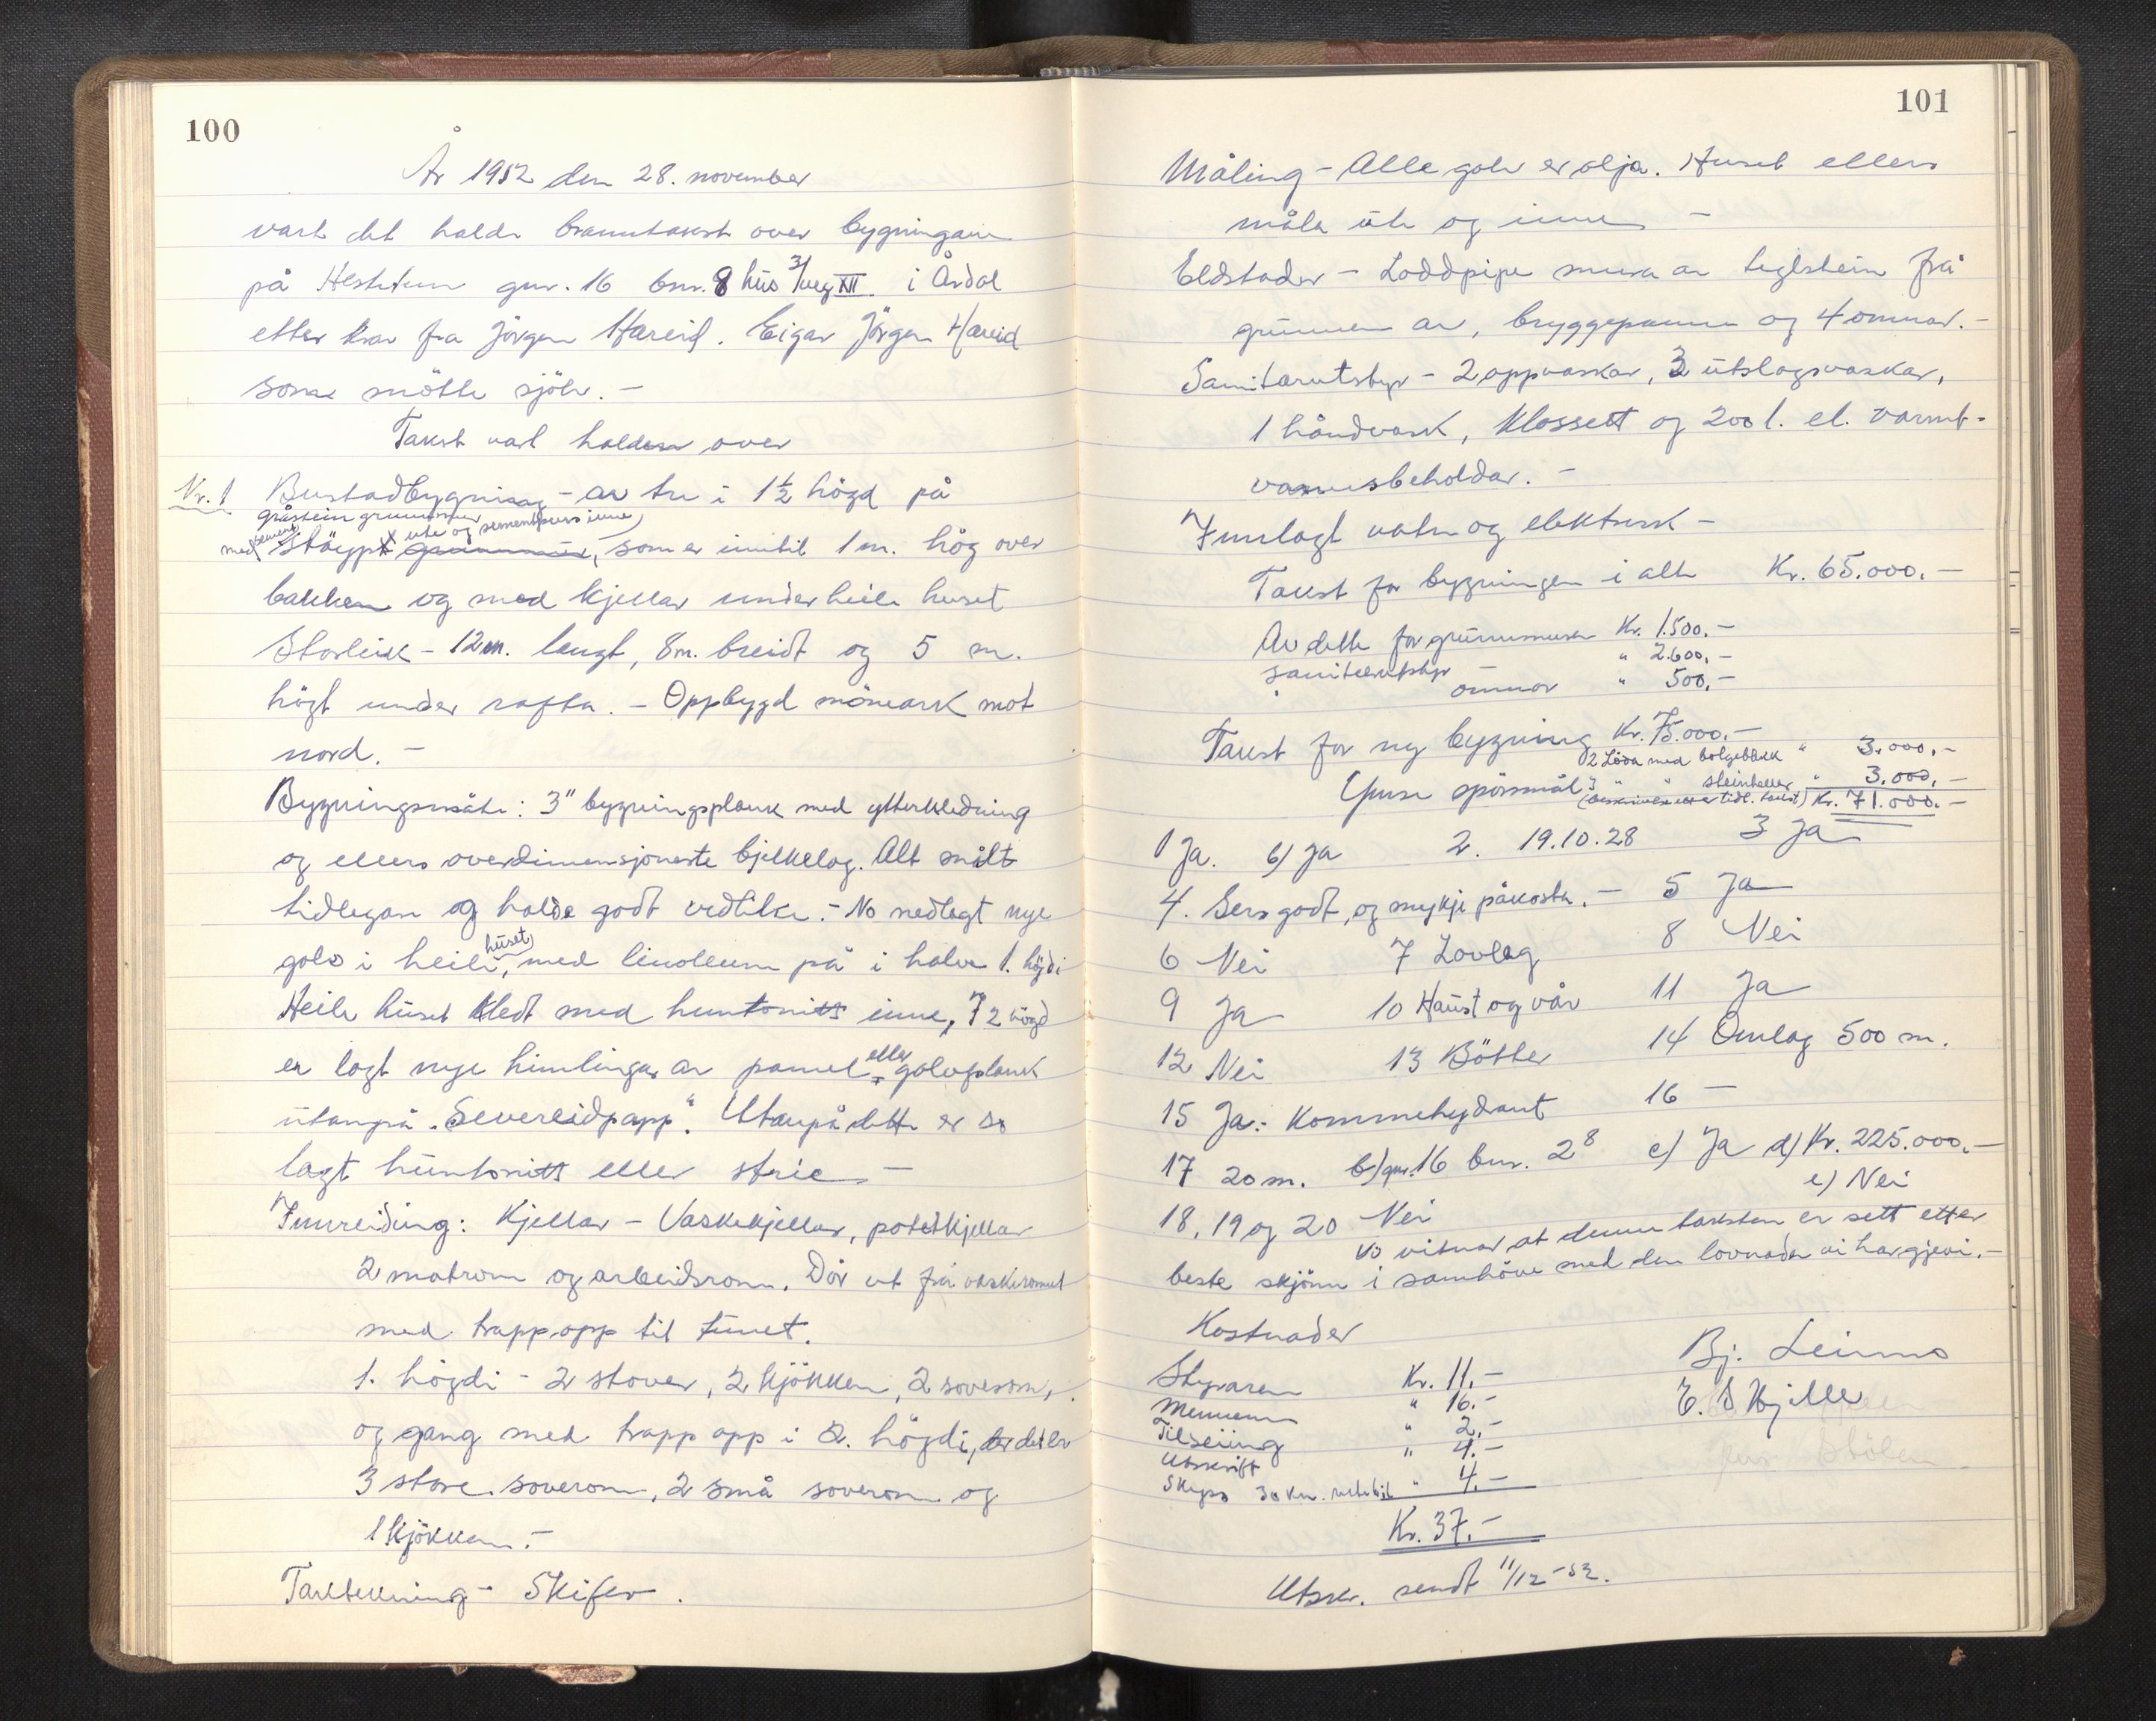 100
År 1952 den 28. november
vart det halde branntakst over bygningane
på Hestetun gnr. 16 bnr. 8 hus 3/veg XII i Årdal
etter krav fra Jörgen Hareid. Eigar Jörgen Hareid
som mötte sjölv. –
Takst vart halden over
Nr. 1 Bustadbygning – av tre i 1½ högd på
gråstein grunnmur
med cement stöypt ute og sementpuss inne, som er inntil 1 m. hög over
bakken og med kjellar under heile huset
Storleik – 12 m. langt, 8 m. breidt og 5 m.
högt under rafta. – Oppbygd möneark mot
nord. –
Bygningsmåte: 3" bygningsplank med ytterkledning
og ellers overdimensjonerte bjelkelag. Alt målt
tidlegare og halde godt vedlike. – No nedlagt nye
golv i heile huset, med linoleum på i halve 1. högdi
Heile huset kledt med huntonitt inne, I 2 högd
er lagt nye himlingar av panel eller golvplank
utanpå „Severeidpapp". Utanpå dette er so
lagt huntonitt eller strie –
Innreiding: Kjellar – Vaskekjellar, potetkjellar
2 matrom og arbeidsrom. Dör ut frå vaskeromet
med trapp opp til tunet.
1. högdi – 2 stover, 2 kjökken, 2 soverom,
og gang med trapp opp i 2. högdi, der det er
3 store soverom, 2 små soverom og
1 kjökken. –
Taktekning – Skifer.
101
Måling – Alle golv er olja. Huset ellers
måla ute og inne –
Eldstader – Loddpipe mura av teglstein frå
grunnen av, bryggepanne og 4 omnar. –
Sanitærutstyr – 2 oppvaskar, 2 utslagsvaskar,
1 håndvask, klossett og 200 l. el. varmt-
vannsbeholdar. –
Innlagt vatn og elektrisk –
Takst for bygningen i alt Kr. 65.000. –
Av dette for grunnmuren Kr. 1.500. –
sanitærutstyr " 2.600. –
omnar " 500. –
Takst for ny bygning Kr. 75.000. –
2 Löa med bølgeblikk " 3.000. –
Ymse spörsmål 3 " " steinheller " 3.000. –
(beskrivelse etter tidl. takst) Kr. 71.000. –
1 Ja. b) Ja 2. 19.10.28 3 Ja
4. Sers godt, og mykje påkosta. – 5 Ja
6 Nei 7 Lovleg 8 Nei
9 Ja 10 Haust og vår 11 Ja
12 Nei 13 Bötter 14 Omlag 500 m.
15 Ja: – Kommehydrant 16 –
17 20 m. b) gnr. 16 bnr. 2⁸ c) Ja d) Kr. 225.000. –
e) Nei
18, 19 og 20 Nei
Vi vitnar at denne taksten er sett etter
beste skjönn i samhöve med den lovnaden vi har gjevi. –
Kostnader
Bj. Leirmo
Styraren Kr. 11. –
E. S. Kjille
Mennene " 16. –
Tilseiing " 2. –
Utskrift " 4. –
Skyss 30 km. " 4. –
Kr. 37. –
Utskr. sendt 11/12 – 52.